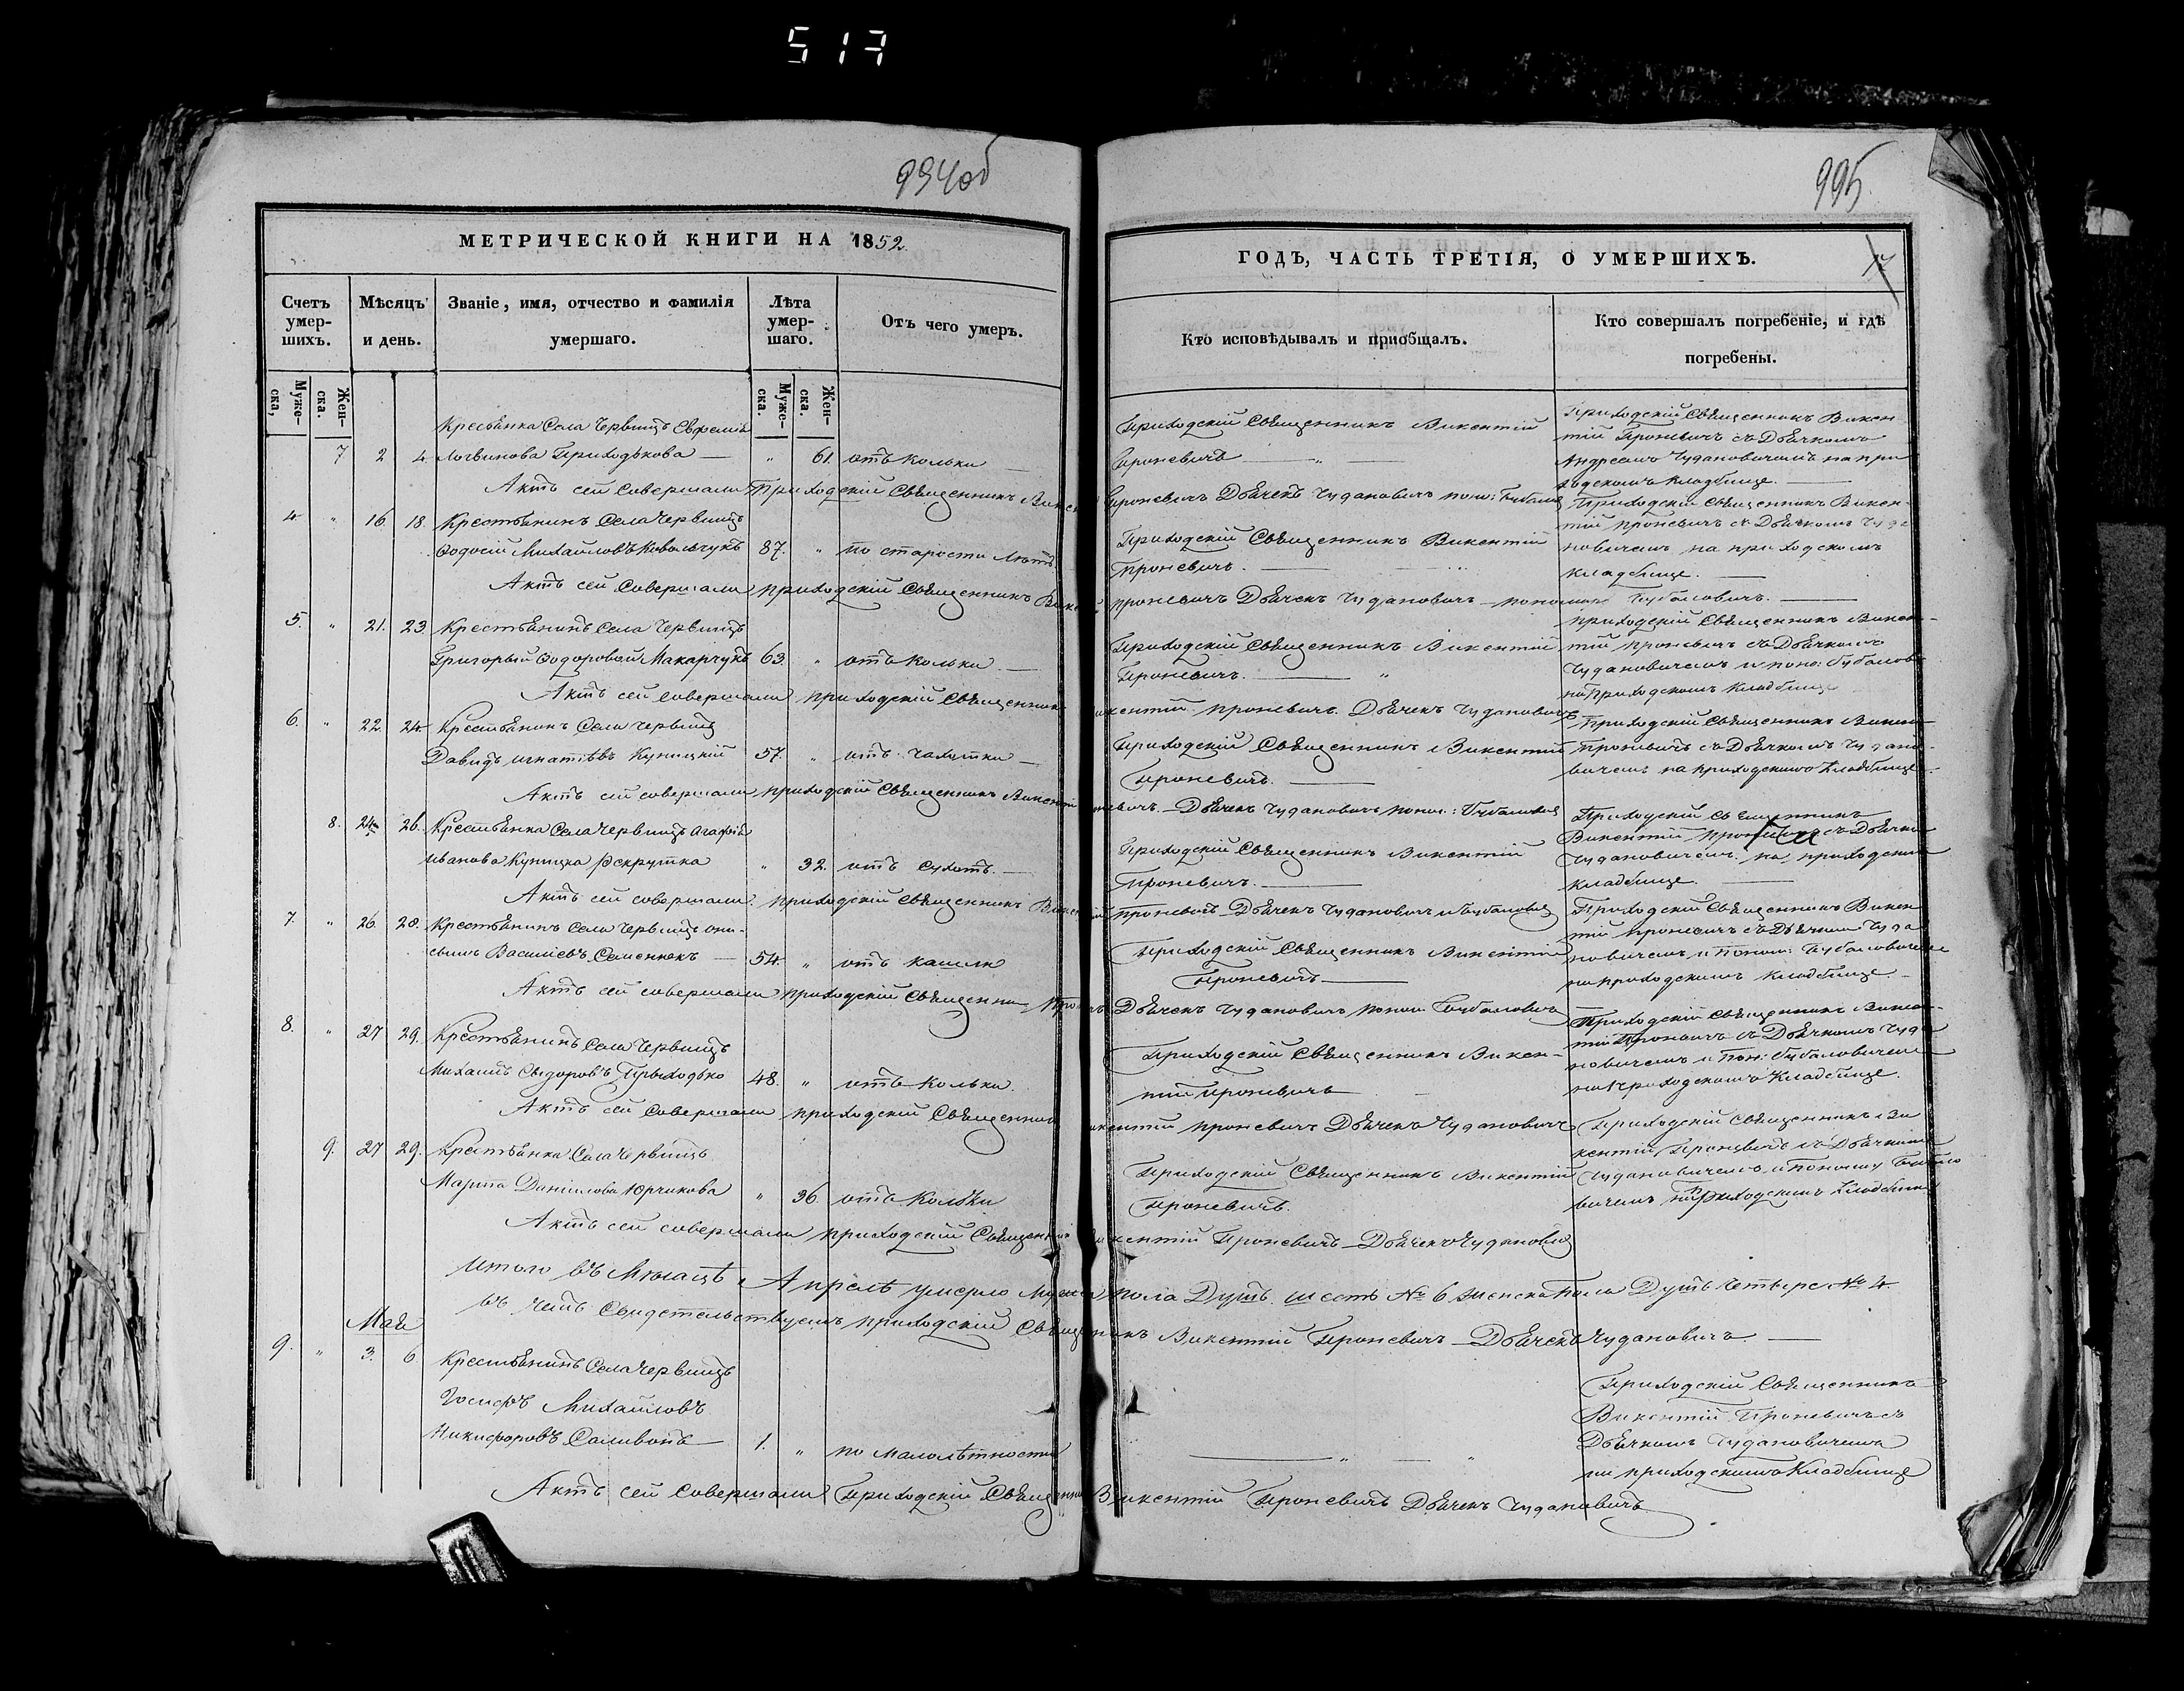 517
994 об
995
МЕТРИЧЕСКОЙ КНИГИ НА 1852.
Счетъ умер-шихъ.
Мѣсяцъ и день.
Званіе, имя, отчество и фамилія умершаго.
Лѣта умер-шаго.
Отъ чего умеръ.
Муже-ска,
Жен-ска.
Муже-ска.
Жен-ска.
Крестьянка Села Червищъ Евфемiя
7 2 4 Логвинова Приходькова — " 61. отъ Кольки —
Актъ сей Совершали Приходскій Священникъ
4 " 16 18. Крестьянинъ Села Червищъ
Ѳодосій Михайловъ Ковальчукъ 87. " по старости
Актъ сей Совершали приходскій Священникъ
5. " 21. 23 Крестьянинъ Села Червищъ
Григорый Ѳодоровъ Макарчукъ 63. " отъ Кольки —
Актъ сей Совершали приходскій Священникъ
6. " 22. 24 Крестьянинъ Села Червищъ
Давидъ Игнатіевъ Куницкій 57. " отъ чахотки —
Актъ сей совершали приходскій Священникъ
8. 24 26. Крестьянка Села Червищъ Агафія
Иванова Куницка Рекрутка " 32. отъ Сухотъ. —
Актъ сей совершали приходскій Священникъ
7. " 26. 28. Крестьянинъ Села Червищъ Они-
симъ Васіліевъ — 54. " отъ кашели
Актъ сей совершали приходскій Священник
8. " 27 29. Крестьянинъ Села Червищъ
Михаилъ Сидоровъ Приходько 48. " отъ Кольки
Актъ сей Совершали приходскій Священник
9. 27 29. Крестьянка Села Червищъ
Марина Данилова Юрчикова " 36. отъ Кольки
Актъ сей совершали приходскій Священник
Итого въ Месяцѣ Апрелѣ умерло Мужеска
въ чемъ Свидетельствуемъ приходскій
Мая
9. " 3. 6 Крестьянинъ Села Червищъ
Іосифъ Михайловъ
Никифоровъ Саливонъ — 1. " по малолѣтности
Актъ сей Совершали Приходскій
ГОДЪ, ЧАСТЬ ТРЕТІЯ, О УМЕРШИХЪ.
17
Кто исповѣдывалъ и приобщалъ.
Кто совершалъ погребеніе, и гдѣ погребены.
Приходскій Священникъ Викентій
Проневичъ — " —
Приходскій Священникъ Викен
тій Проневичъ съ Дьячкомъ
Андреемъ Чудановичемъ на при
ходскомъ Кладбище. —
Проневичъ Дьячекъ Чудановичъ
Приходскій Священникъ Викентій
Проневичъ. —
Приходскій Священникъ Викен-
тій Проневичъ съ Дьячкомъ Чуда
новичемъ на приходскомъ
кладбище. —
Проневичъ Дьячекъ Чудановичъ
Приходскій Священникъ Викентій
Проневичъ. — "
приходскій Священникъ Викен-
тій Проневичъ съ Дьячкомъ
Чудановичемъ и поно:
на Приходскомъ Кладбище
Викентій Проневичъ. Дьячекъ Чудановичъ
Приходскій Священникъ Викентій
Проневичъ. —
Приходскій Священникъ Викен
Проневичъ съ Дьячкомъ Чудано-
вичемъ на приходскомъ Кладбище.
Дьячекъ Чудановичъ
Приходскій Священникъ Викентій
Проневичъ. —
Приходскій Священникъ
Викентій съ Дьячко
Чудановичемъ на приходском
кладбище. —
Проневичъ Дьячекъ Чудановичъ
Приходскій Священникъ Викентій
Проневичъ —
Приходскій Священникъ Викен
тій Проневичъ съ Дьячкомъ Чуда
новичемъ и Поном:
на приходскомъ кладбище —
Дьячекъ Чудановичъ
Приходскій Священникъ Викен-
тій Проневичъ
Приходскій Священникъ Викен-
тій Проневичъ съ Дьячкомъ Чуда
новичемъ и Пон:
на Приходскомъ Кладбище.
Викентій Проневичъ Дьячекъ Чудановичъ
Приходскій Священникъ Викентій
Проневичъ.
Приходскій Священникъ Ви
кентій Проневичъ съ Дьячкомъ
Чудановичемъ и
на Приходскомъ Кладбище
Викентій Проневичъ — Дьячекъ Чудановичъ
пола Душъ шесть № 6 Женска Пола Душъ Четыре № 4.
Викентій Проневичъ — Дьячекъ Чудановичъ —
Приходскій Священникъ
Викентій Проневичъ съ
Дьячкомъ Чудановичемъ
на приходскомъ Кладбище
Викентій Проневичъ Дьячекъ Чудановичъ